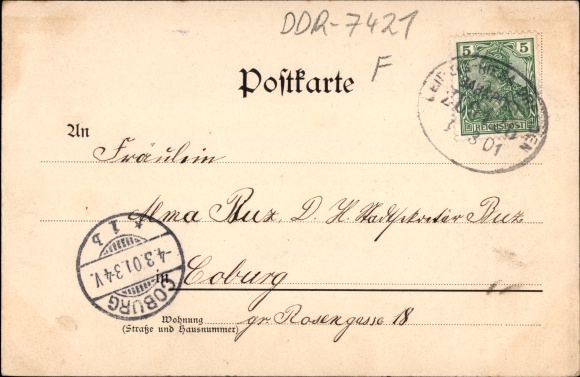 DDR-7421
F
5 5
REICHSPOST
3 01
Postkarte
An
Fräulein
Alma Bux, D. H. Stadtsekretär Bux
in Coburg
Wohnung
(Straße und Hausnummer)
gr. Rosengasse 18
COBURG
4.3.01.3-4V.
* 1 b